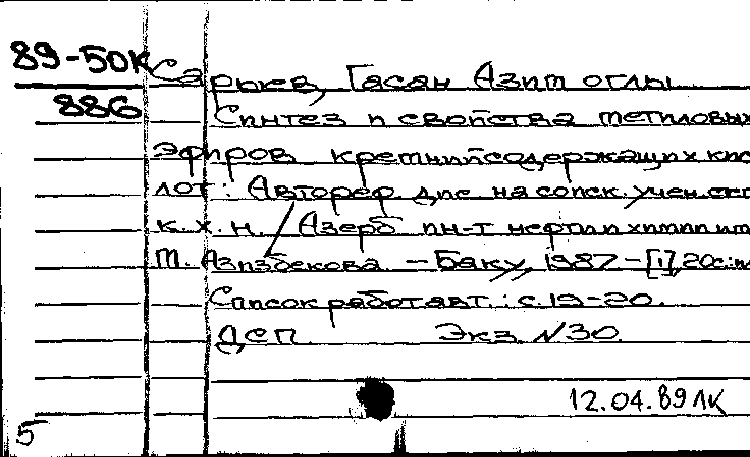 89-50К
886
Сарыев, Гасан Азим оглы
Синтез и свойства метиловых
эфиров кремнийсодержащих кис
лот: Автореф. дис. на соиск. учен. степ
к. х. н. / Азерб ин-т нефти и химии им
М. Азизбекова - Баку, 1987 - [1], 20с.:и
Список работ авт.: с. 19-20.
ДСП Экз N30
12.04.89 ЛК
5